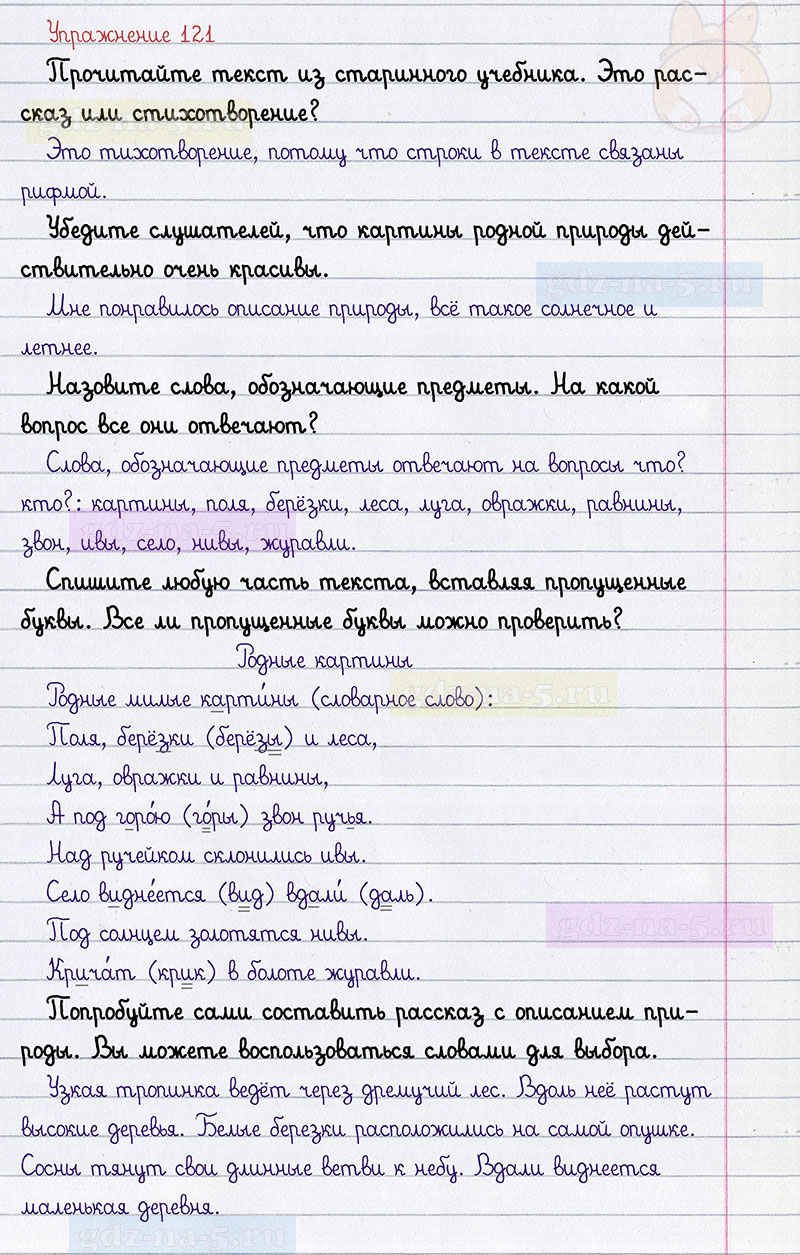 Упражнение 121
Прочитайте текст из старинного учебника. Это рас-
сказ или стихотворение?
gdz-na-5.ru
Это тихотворение, потому что строки в тексте связаны
рифмой.
Убедите слушателей, что картины родной природы дей-
ствительно очень красивы.
gdz-na-5.ru
Мне понравилось описание природы, всё такое солнечное и
летнее.
Назовите слова, обозначающие предметы. На какой
вопрос все они отвечают?
Слова, обозначающие предметы отвечают на вопросы что?
кто?: картины, поля, берёзки, леса, луга, овражки, равнины,
gdz-na-5.ru
звон, ивы, село, нивы, журавли.
Спишите любую часть текста, вставляя пропущенные
буквы. Все ли пропущенные буквы можно проверить?
Родные картины
Родные милые карти́ны (словарное слово):
gdz-na-5.ru
Поля, берёзки (берёзы) и леса,
Луга, овражки и равнины,
А под горо́ю (го́ры) звон ручья.
Над ручейком склонились ивы.
Село видне́ется (вид) вдали́ (даль).
gdz-na-5.ru
Под солнцем золотятся нивы.
Крича́т (крик) в болоте журавли.
Попробуйте сами составить рассказ с описанием при-
роды. Вы можете воспользоваться словами для выбора.
Узкая тропинка ведёт через дремучий лес. Вдоль неё растут
высокие деревья. Белые березки расположились на самой опушке.
Сосны тянут свои длинные ветви к небу. Вдали виднеется
маленькая деревня.
gdz-na-5.ru